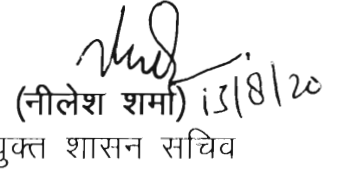 (नीलेश शर्मा) 13/8/20
युक्त शासन सचिव